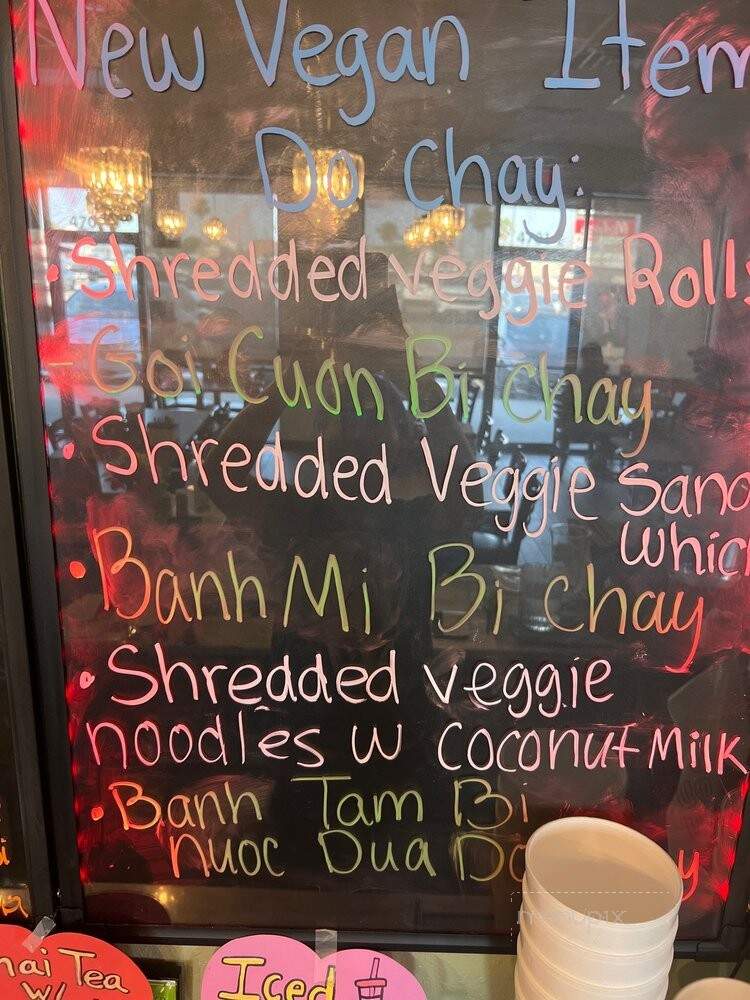 New Vegan Item
Do Chay:
• Shredded Veggie Rolls
- Goi Cuon Bi chay
• Shredded Veggie Sand
which
• Banh Mi Bi chay
• Shredded veggie
noodles w coconut Milk
• Banh Tam Bi
nuoc Dua Do y
hai Tea
w/
Iced
menupix